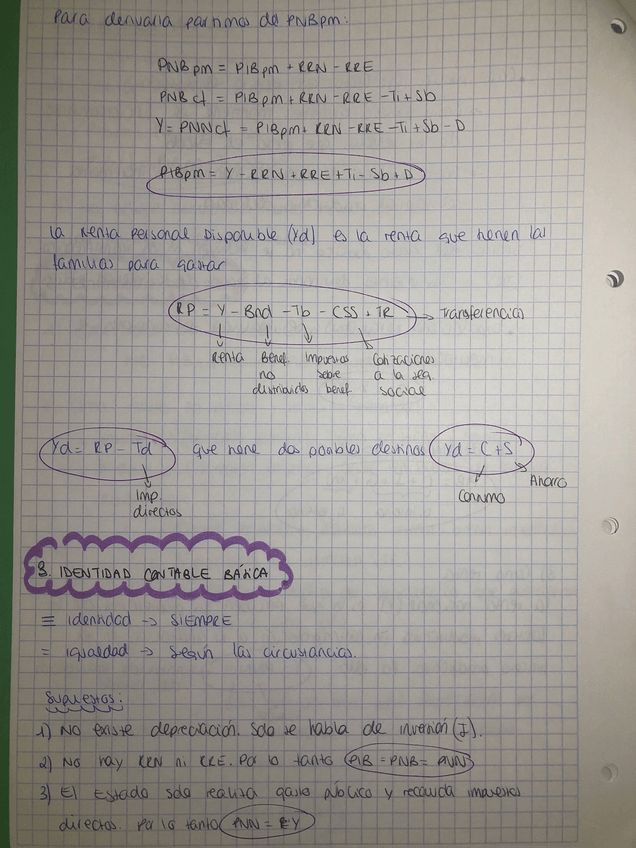 Para derivarla partimos de PNBpm:
PNBpm = PIBpm + RRN - RRE
PNBcf = PIBpm + RRN - RRE - Ti + Sb
Y = PNNcf = PIBpm + RRN - RRE - Ti + Sb - D
PIBpm = Y - RRN + RRE + Ti - Sb + D
La Renta Personal Disponible (Yd) es la renta que tienen las
familias para gastar
RP = Y - Bnd - Tb - CSS + TR → Transferencias
Renta Benef. Impuestos Cotizaciones
no sobre a la seg.
distribuidos benef. social
Yd = RP - Td que tiene dos posibles destinos Yd = C + S
Ahorro
Imp. Consumo
directos
3. IDENTIDAD CONTABLE BÁSICA
≡ identidad → SIEMPRE
= igualdad → según las circustancias.
Supuestos:
1) No existe depreciación. Solo se habla de inversión (I).
2) No hay RRN ni RRE. Por lo tanto PIB = PNB = PNN
3) El Estado solo realiza gasto público y recauda impuestos
directos. Por lo tanto PNN = Y